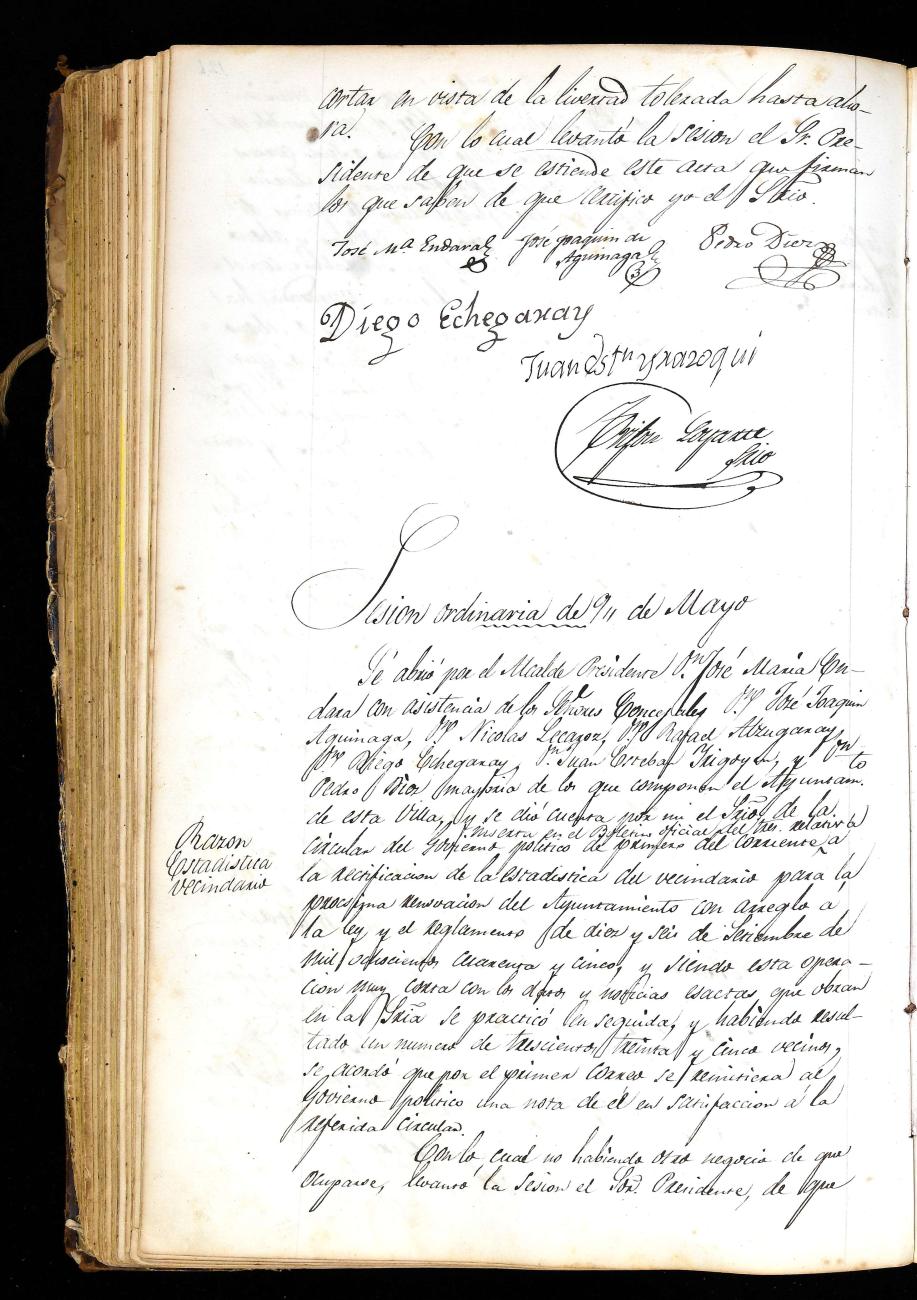 cortar en vista de la livertad tolerada hasta aho-
ra.
Con lo cual levantó la sesion el Sr. Pre-
sidente de que se estiende este acta que firman
los que saben de que certifico yo el Srio.
José Ma Endara José Joaquin de
Aguinaga Pedro Diez
Diego Echegaray
Juan Estn Yrazoqui
Loyarte
Srio
Sesion ordinaria de 9,, de Mayo
Sé abrió por el Alcalde Presidente Dn José Maria En-
dara con asistencia de los Señores Concejales Dn José Joaquin
Aguinaga, Dn Nicolas Lecazoz, Dn Rafael Alzugaray,
Dn Diego Echegaray, Dn Juan Esteban Yrigoyen, y Dn
Pedro Diez mayoria de los que componen el Ayuntamto
de esta Villa, y se dió cuenta por mi el Srio de la
inserta en el Boletin oficial del tres. relativa
circular del Govierno politico de primero del corriente a
Razon
Estadistica
Vecindario
la rectificacion de la estadistica del vecindario para la
procsima renovacion del Ayuntamiento con arreglo á
la ley y el reglamento de diez y seis de Setiembre de
mil ochocientos cuarenta y cinco, y siendo esta opera-
cion muy corta con los datos y noticias esactas que obran
en la Sria se practicó en seguida, y habiendo resul-
tado un numero de trescientos treinta y cinco vecinos,
se acordó que por el primer correo se remitiera al
Govierno politico una nota de el en satisfaccion á la
referida circular.
Con lo cual no habiendo otro negocio de que
ocuparse, levantó la Sesion el Sor. Presidente, de que